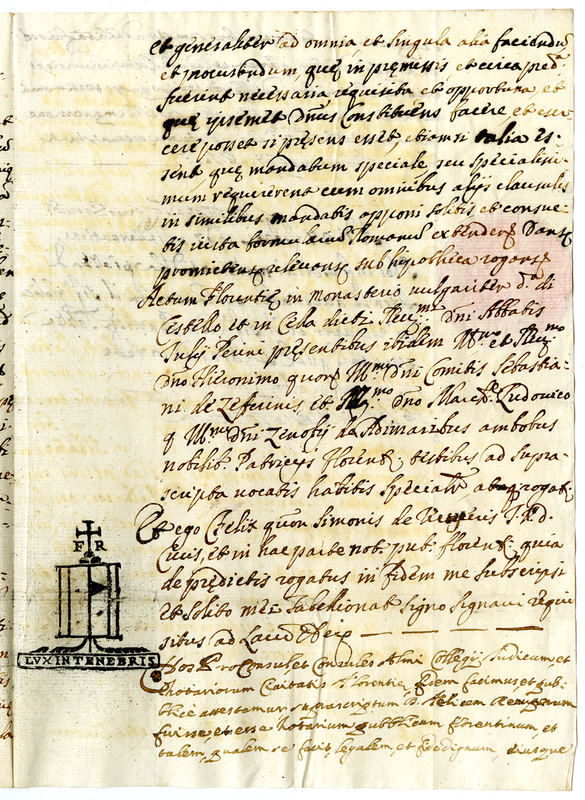 et generaliter ad omnia, et singula alia faciendũ
et procurandum, quę in pręmissis et circa pred:
fuerint necessaria requisita et opportuna et
quę ipsemet Dñus Constituens facere et exer
cere posset si pręsens esset, etiam si talia es-
sent, quę mandatum speciale, seu specialissi-
mum requirerent cum omnibus alijs clausulis
in similibus mandatis apponi solitis et consue
tis iuxta formulariũ Romanũ extenden Dans
promittens relevans sub hypotheca rogans
Actum Florentię in monasterio vulgariter d.º di
Cestello et in Cella dicti Reu.mi Dñi Abbatis
pręsentibus ibidem Ill.mo et
Dño Hieronimo quon Ill.mi Dñi Comitis Sebastia-
ni de Zeferinis, et Ill.mo Dño March. Ludovico
q Ill.mi Dñi Zenobij de Adimaribus ambobus
nobilib. Patricijs Florent. testibus ad supra-
scripta vocatis habitis specialr atq rogatis
Et ego Felix quon Simonis de J. V. D.
Civis, et in hac parte not. pub. florent. quia
de prędictis rogatus in fidem me subscripsi
et solito mei Tabellionat signo signavi requi
situs ad Laud Dei
F R
LVX IN TENEBRIS
Nos Proconsul, et Consules Almi Collegij Iudicum, et
Notariorum Civitatis Florentie fidem facimus, et pub
licè attestamur suprascriptum D. Felicem
fuisse, et esse Notarium publicum florentinum, et
talem, qualem se facit, legalem, et fidedignum, eiusque